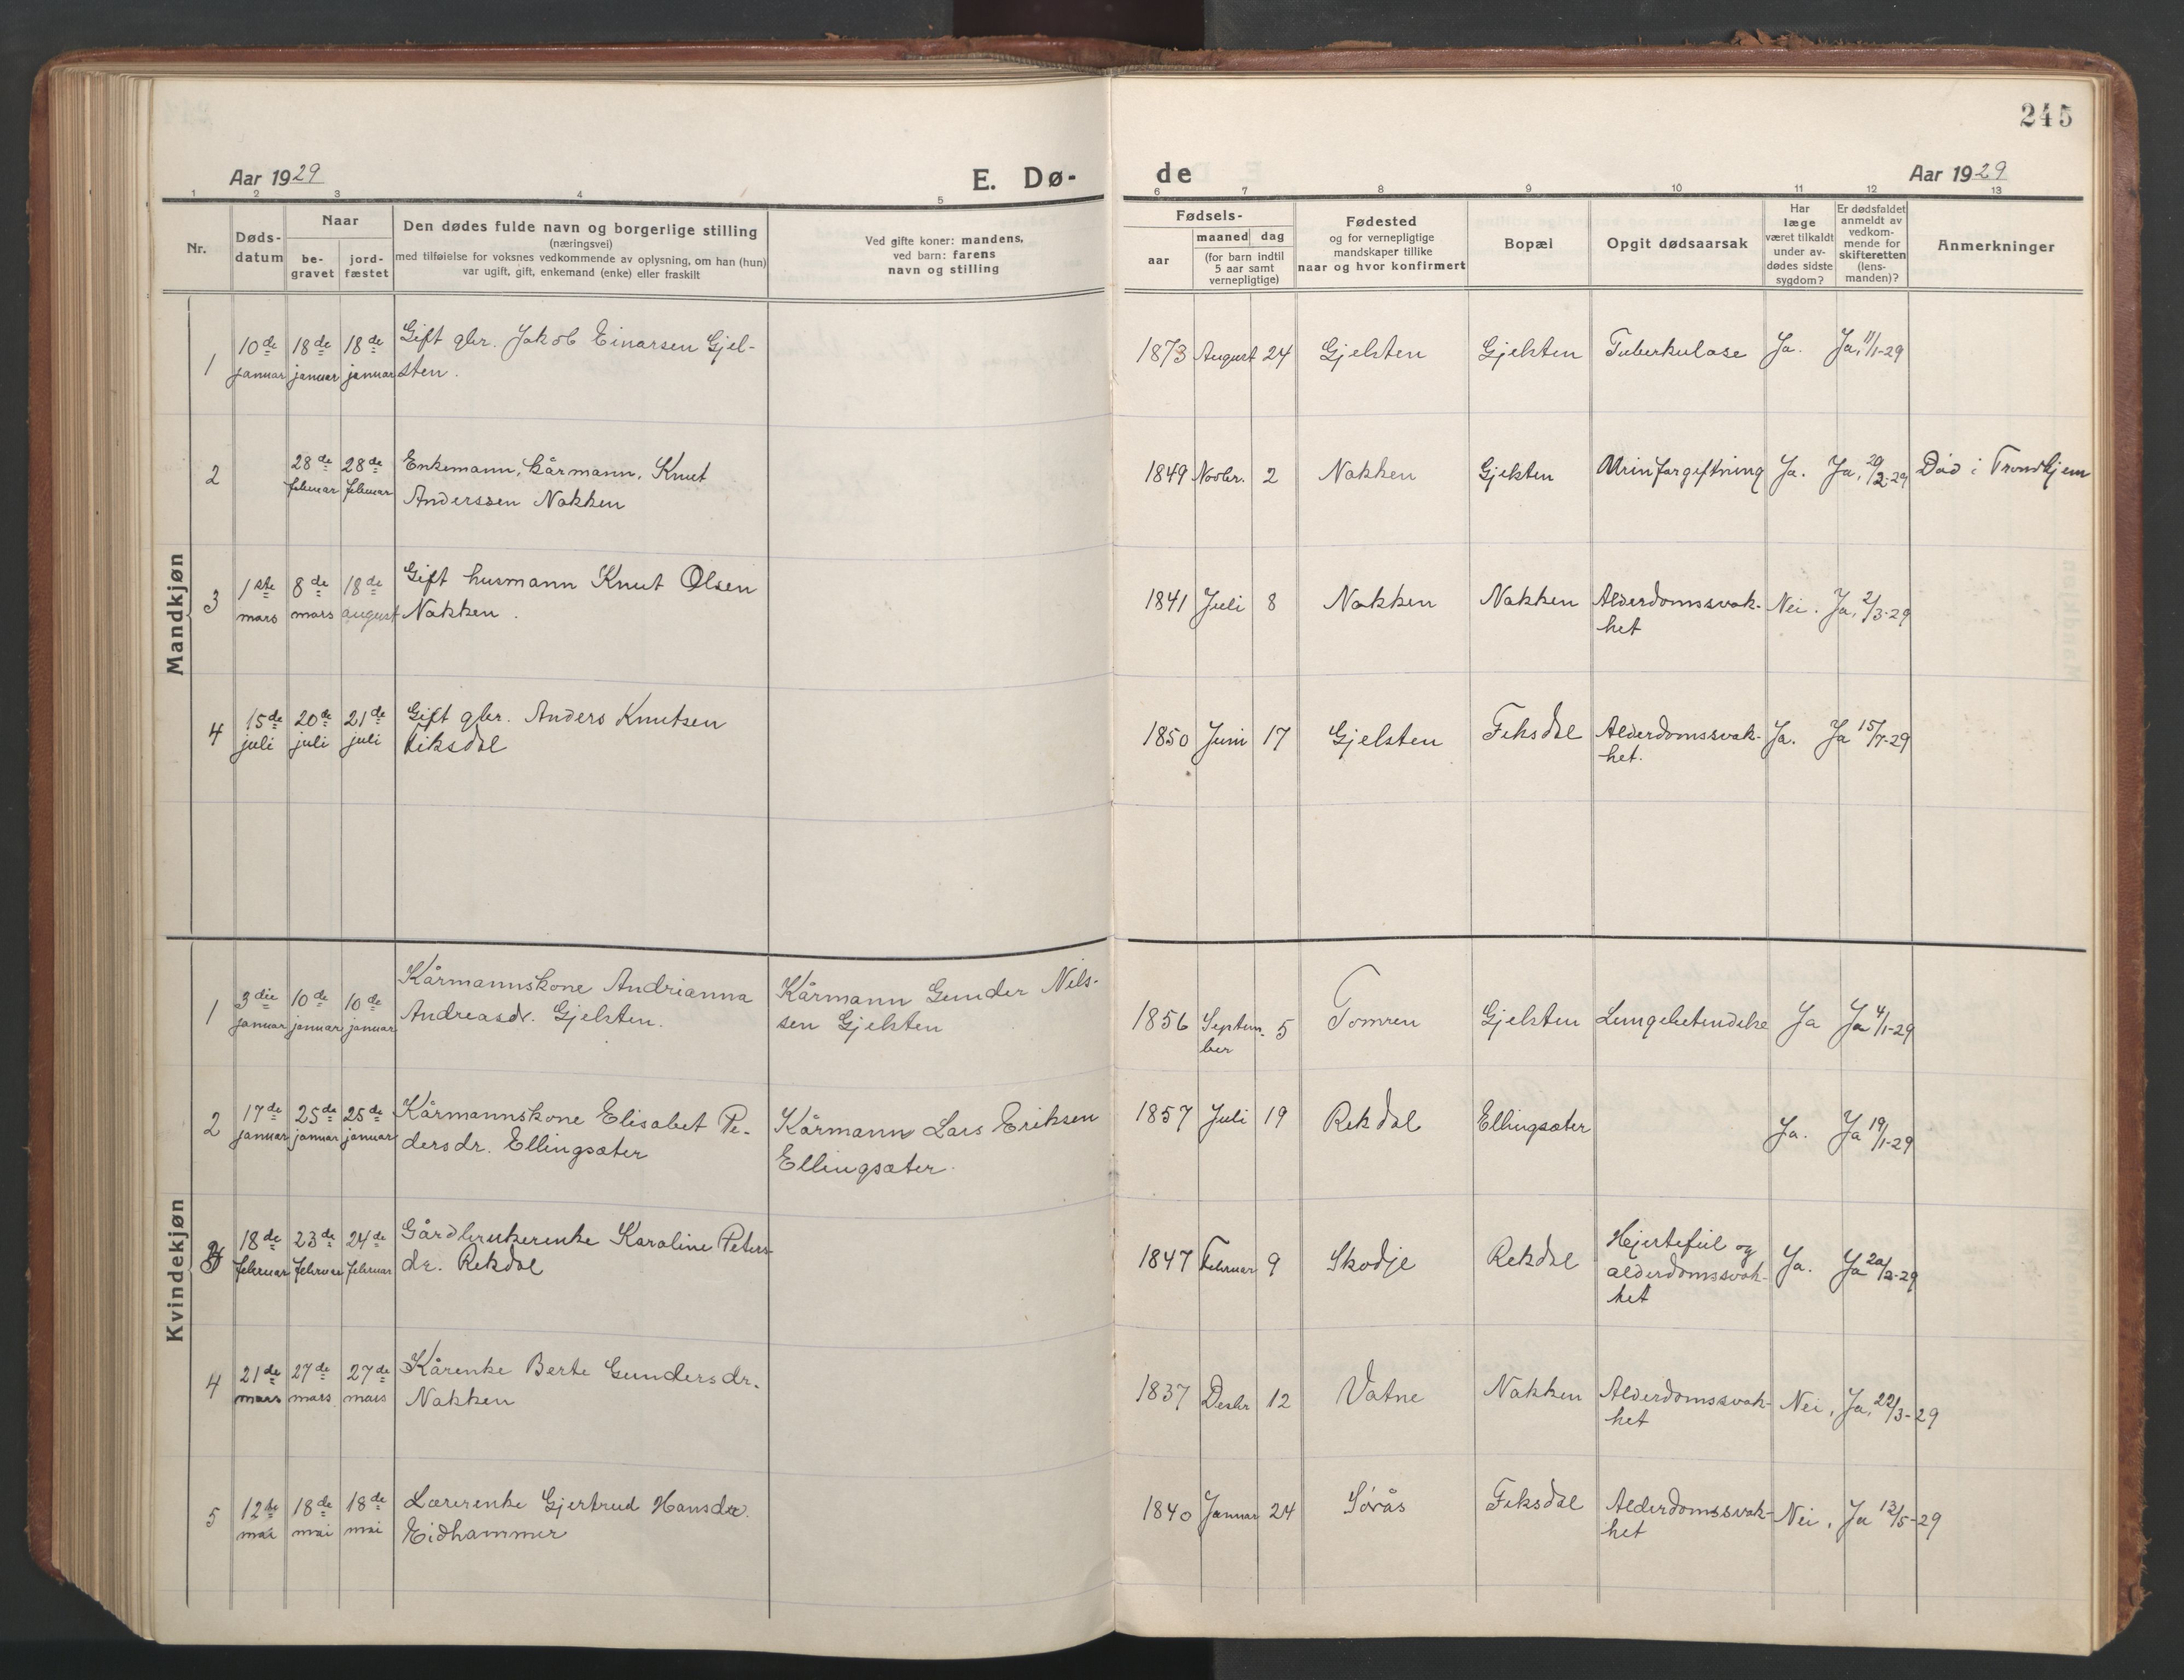 245
Aar 1929
E. Dø-
de
Aar 1929
1 2 3 4 5 6 7 8 9 10 11 12 13
Nr.
Døds-
datum
Naar
be-
gravet
jord-
fæstet
Den dødes fulde navn og borgerlige stilling
(næringsvei)
med tilføielse for voksnes vedkommende av oplysning, om han (hun)
var ugift, gift, enkemand (enke) eller fraskilt
Ved gifte koner: mandens,
ved barn: farens
navn og stilling
Fødsels-
aar
maaned dag
(for barn indtil
5 aar samt
vernepligtige)
Fødested
og for vernepligtige
mandskaper tillike
naar og hvor konfirmert
Bopæl
Opgit dødsaarsak
Har
læge
været tilkaldt
under av-
dødes sidste
sygdom?
Er dødsfaldet
anmeldt av
vedkom-
mende for
skifteretten
(lens-
manden)?
Anmerkninger
Mandkjøn
1 10de januar 18de januar 18de januar Gift gbr. Jakob Einarsen Gjel-
sten.
1873 August 24 Gjelsten Gjelsten Tuberkulose Ja. Ja, 11/1-29
2 28de februar 28de februar Enkemann, kårmann, Knut
Anderssen Nakken
1849 Novbr. 2 Nakken Gjelsten Urinforgiftning Ja. Ja, 20/2-29 Död i Trondhjem
3 1ste mars 8de mars 18de august Gift husmann Knut Olsen
Nakken.
1841 Juli 8 Nakken Nakken Alderdomssvak-
het
Nei. Ja, 2/3-29
4 15de juli 20de juli 21de juli Gift gbr. Anders Knutsen
Fiksdal
1850 Juni 17 Gjelsten Fiksdal Alderdomssvak-
het.
Ja. Ja 15/7-29
Kvindekjøn
1 3die januar 10de januar 10de januar Kårmannskone Andrianna
Andreasdr. Gjelsten.
Kårmann Gunder Nils-
sen Gjelsten
1856 Septem-
ber
5 Tomren Gjelsten Lungebetendelse Ja Ja 4/1-29
2 17de januar 25de januar 25de januar Kårmannskone Elisabet Pe-
dersdr. Ellingsæter
Kårmann Lars Eriksen
Ellingsæter.
1857 Juli 19 Rekdal Ellingsæter Ja. Ja 19/1-29
3 18de februar 23de februar 24de februar Gårdbrukerenke Karoline Peters-
dr. Rekdal
1847 Februar 9 Skodje Rekdal Hjertefeil og
alderdomssvak-
het
Ja. Ja 20/2-29
4 21de mars 27de mars 27de mars Kårenke Berte Gundersdr.
Nakken
1837 Desbr 12 Vatne Nakken Alderdomssvak-
het
Nei, Ja, 22/3-29
5 12te mai 18de mai 18de mai Lærerenke Gjertrud Hansdtr.
Eidhammer
1840 Januar 24 Sørås Fiksdal Alderdomssvak-
het
Nei, Ja 13/5-29